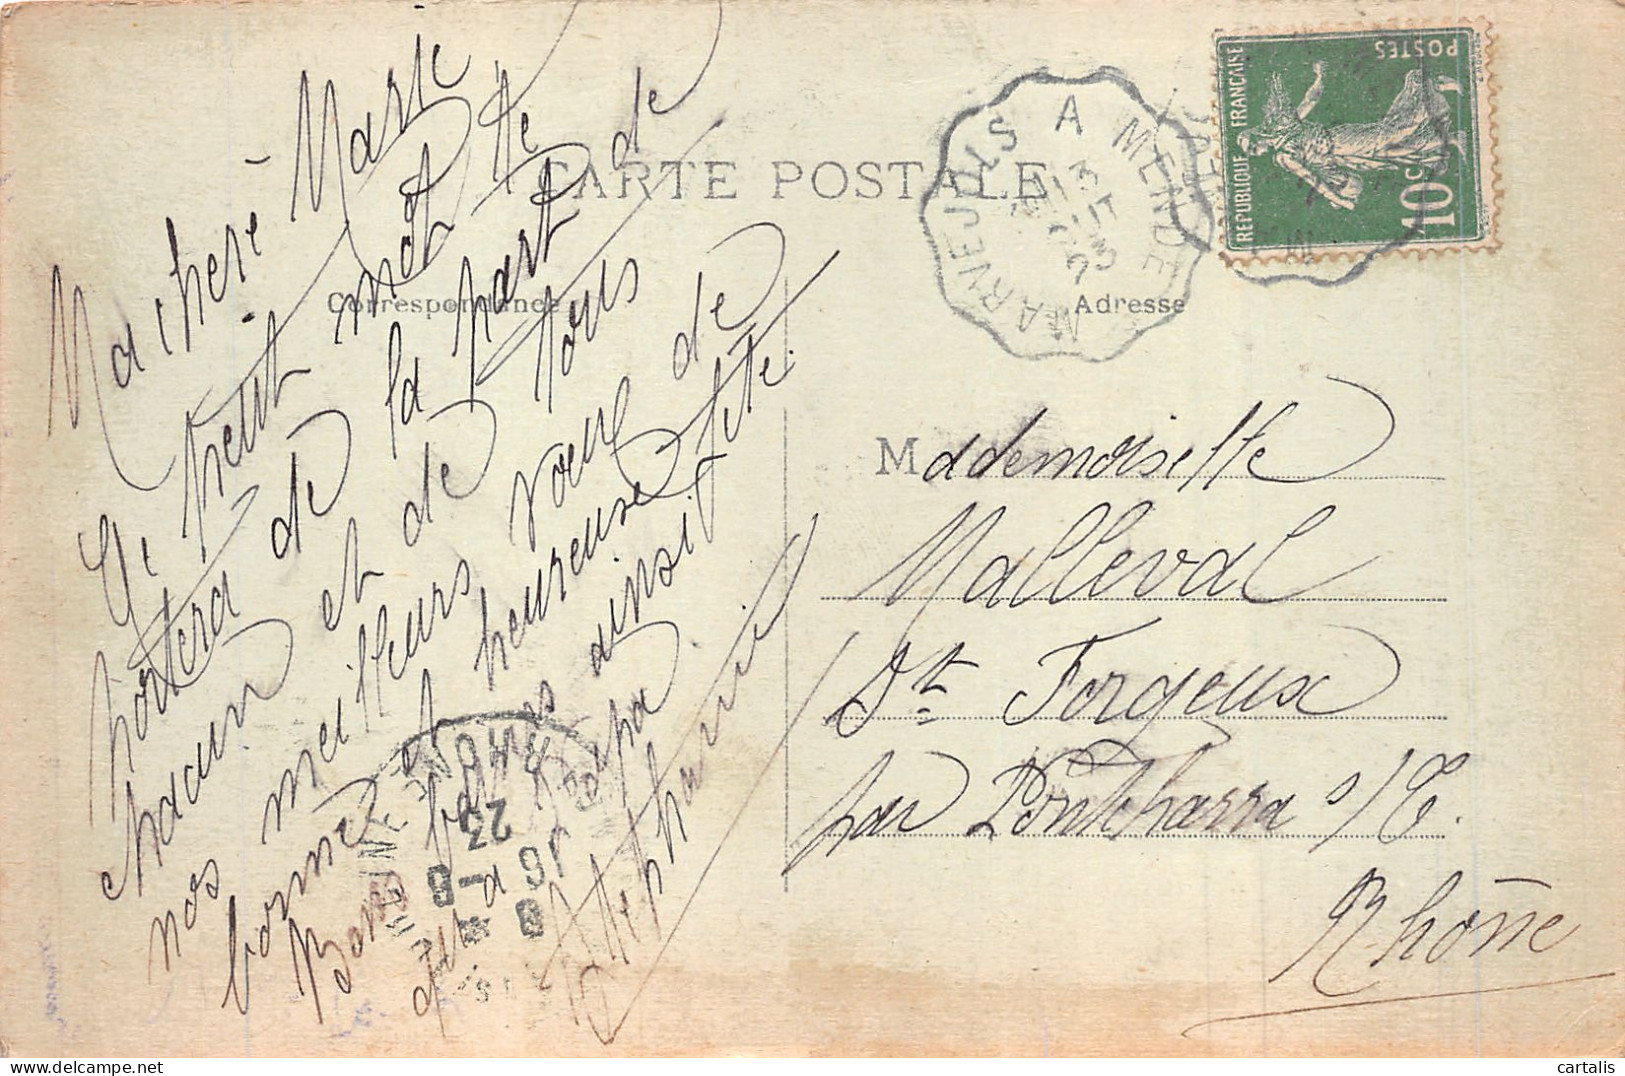 CARTE POSTALE
Correspondance
Adresse
Ma chère Marie
Ce petit mot te
portera de la part de
chacun et de tous
nos meilleurs vœux de
bonne et heureuse fête.
Bons baisers ainsi
du papa
Stéphanie
Mademoiselle
Malleval
St Forgeux
par Pontcharra s/T.
Rhône
MARVEJOLS A MENDE
13
23
REPUBLIQUE FRANÇAISE
POSTES
10 C
16 - 8
23
RHONE
cartalis